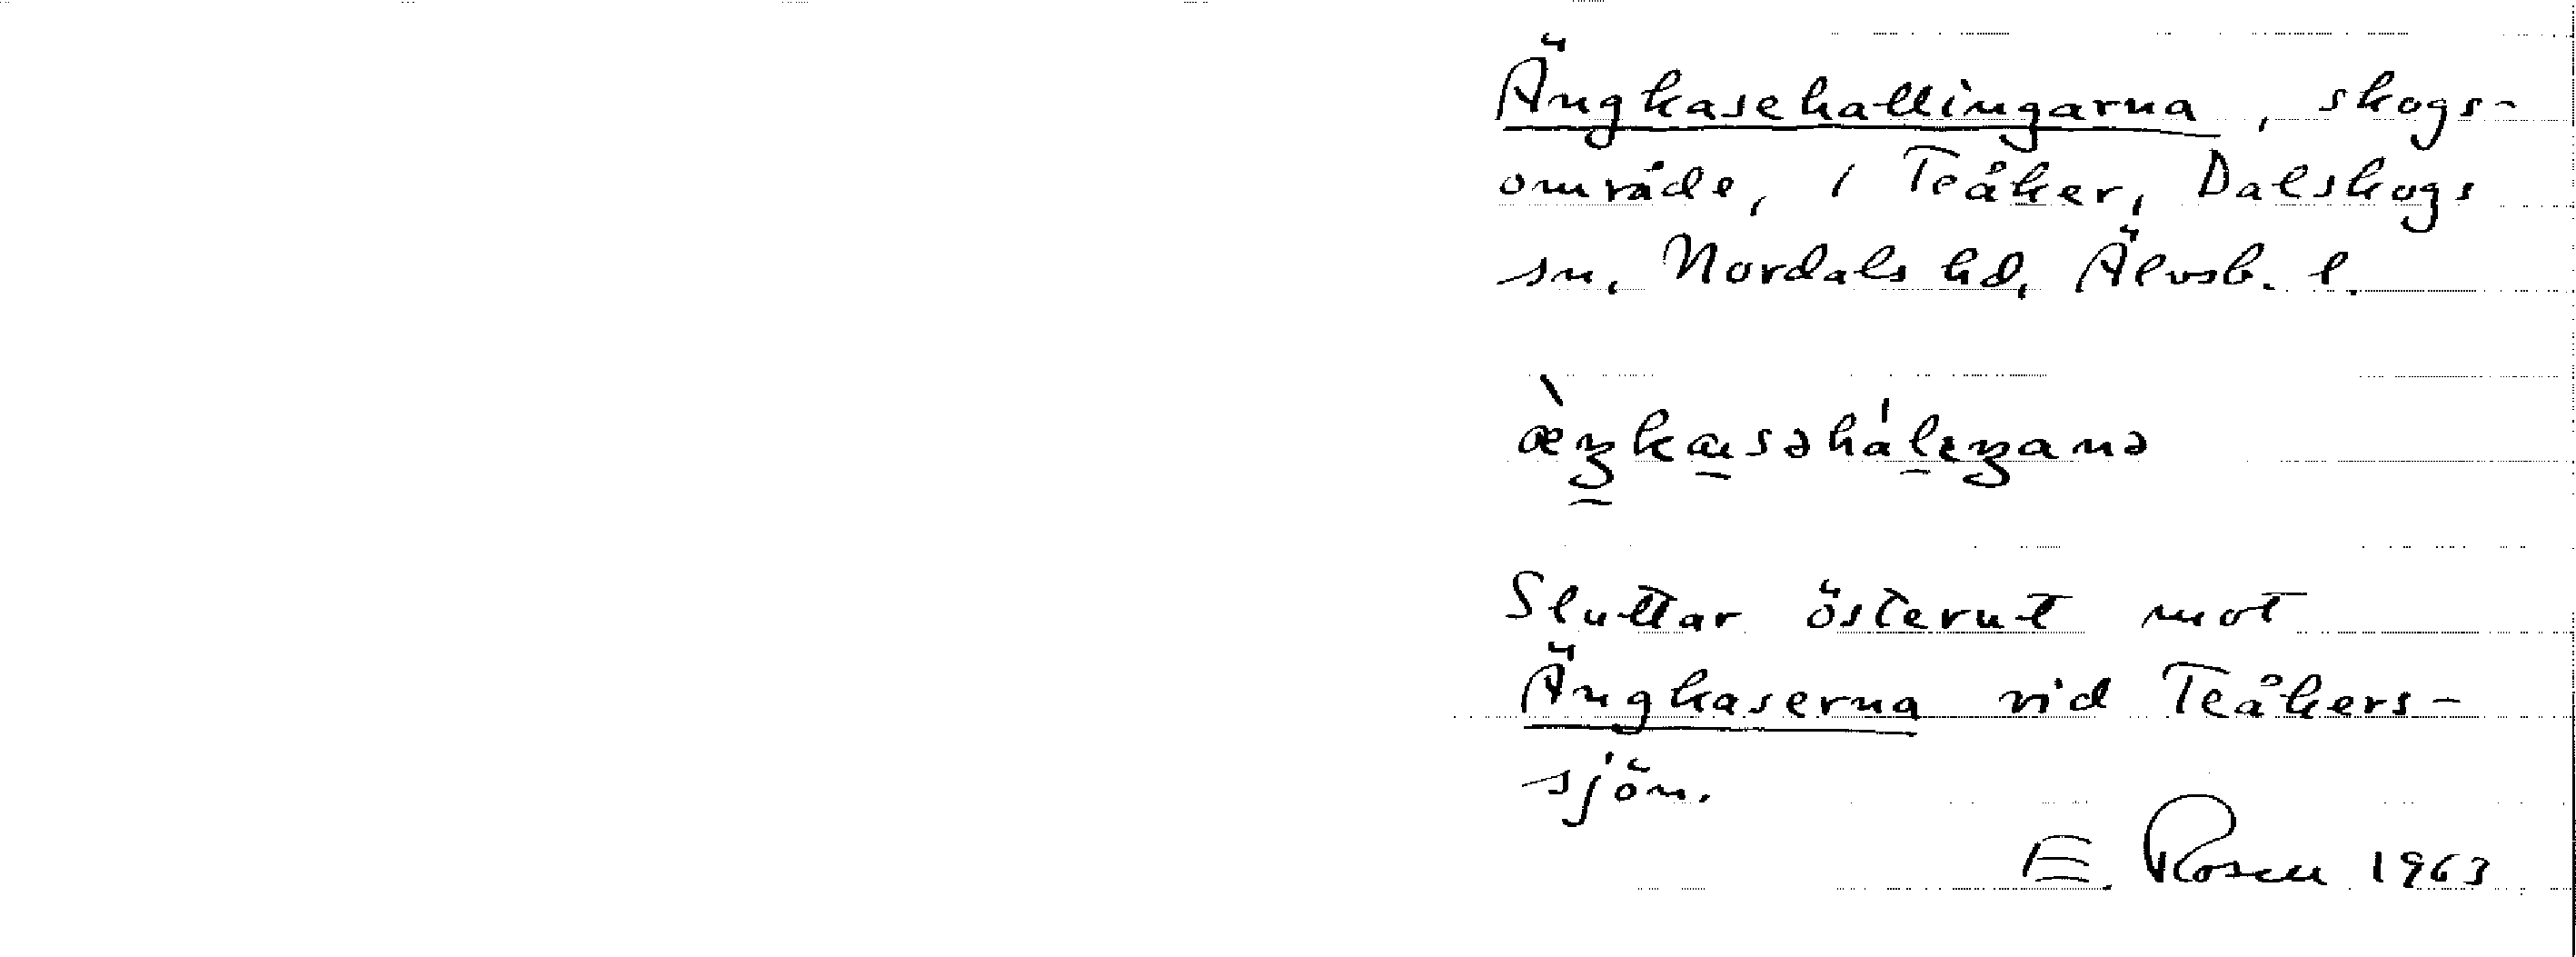 Ängkasehallingarna, skogs-
område, i Teåker, Dalskogs
sn, Nordals hd, Älvsb. l.
Sluttar österut mot
Ängkaserna vid Teåkers-
sjön.
E. Rosen 1963